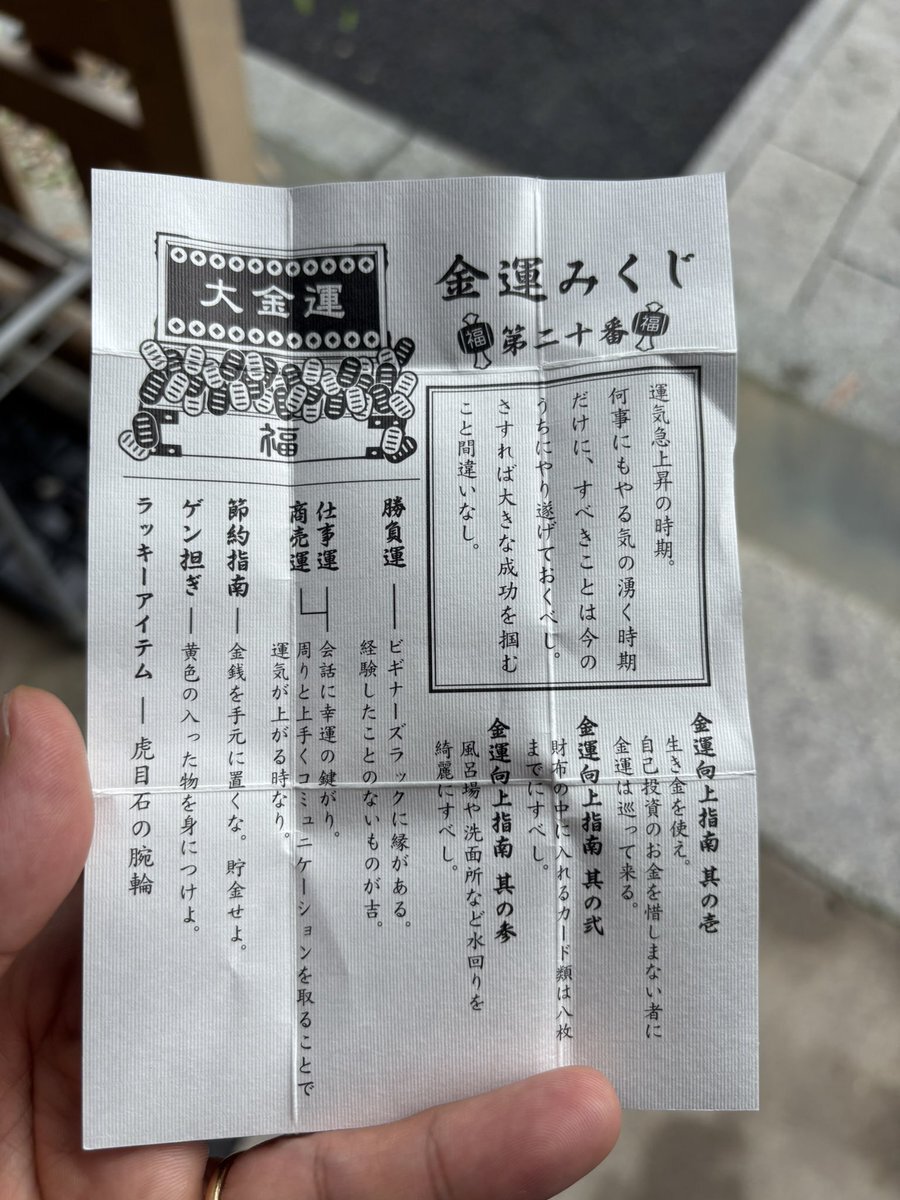 金運みくじ
福 第二十番 福
運気急上昇の時期。
何事にもやる気の湧く時期
だけに、すべきことは今の
うちにやり遂げておくべし。
さすれば大きな成功を掴む
こと間違いなし。
金運向上指南 其の壱
生き金を使え。
自己投資のお金を惜しまない者に
金運は巡って来る。
金運向上指南 其の弐
財布の中に入れるカード類は八枚
までにすべし。
金運向上指南 其の参
風呂場や洗面所など水回りを
綺麗にすべし。
大金運
福
勝負運
ビギナーズラックに縁がある。
経験したことのないものが吉。
仕事運
商売運
会話に幸運の鍵がり。
周りと上手くコミュニケーションを取ることで
運気が上がる時なり。
節約指南
金銭を手元に置くな。貯金せよ。
ゲン担ぎ
黄色の入った物を身につけよ。
ラッキーアイテム
虎目石の腕輪